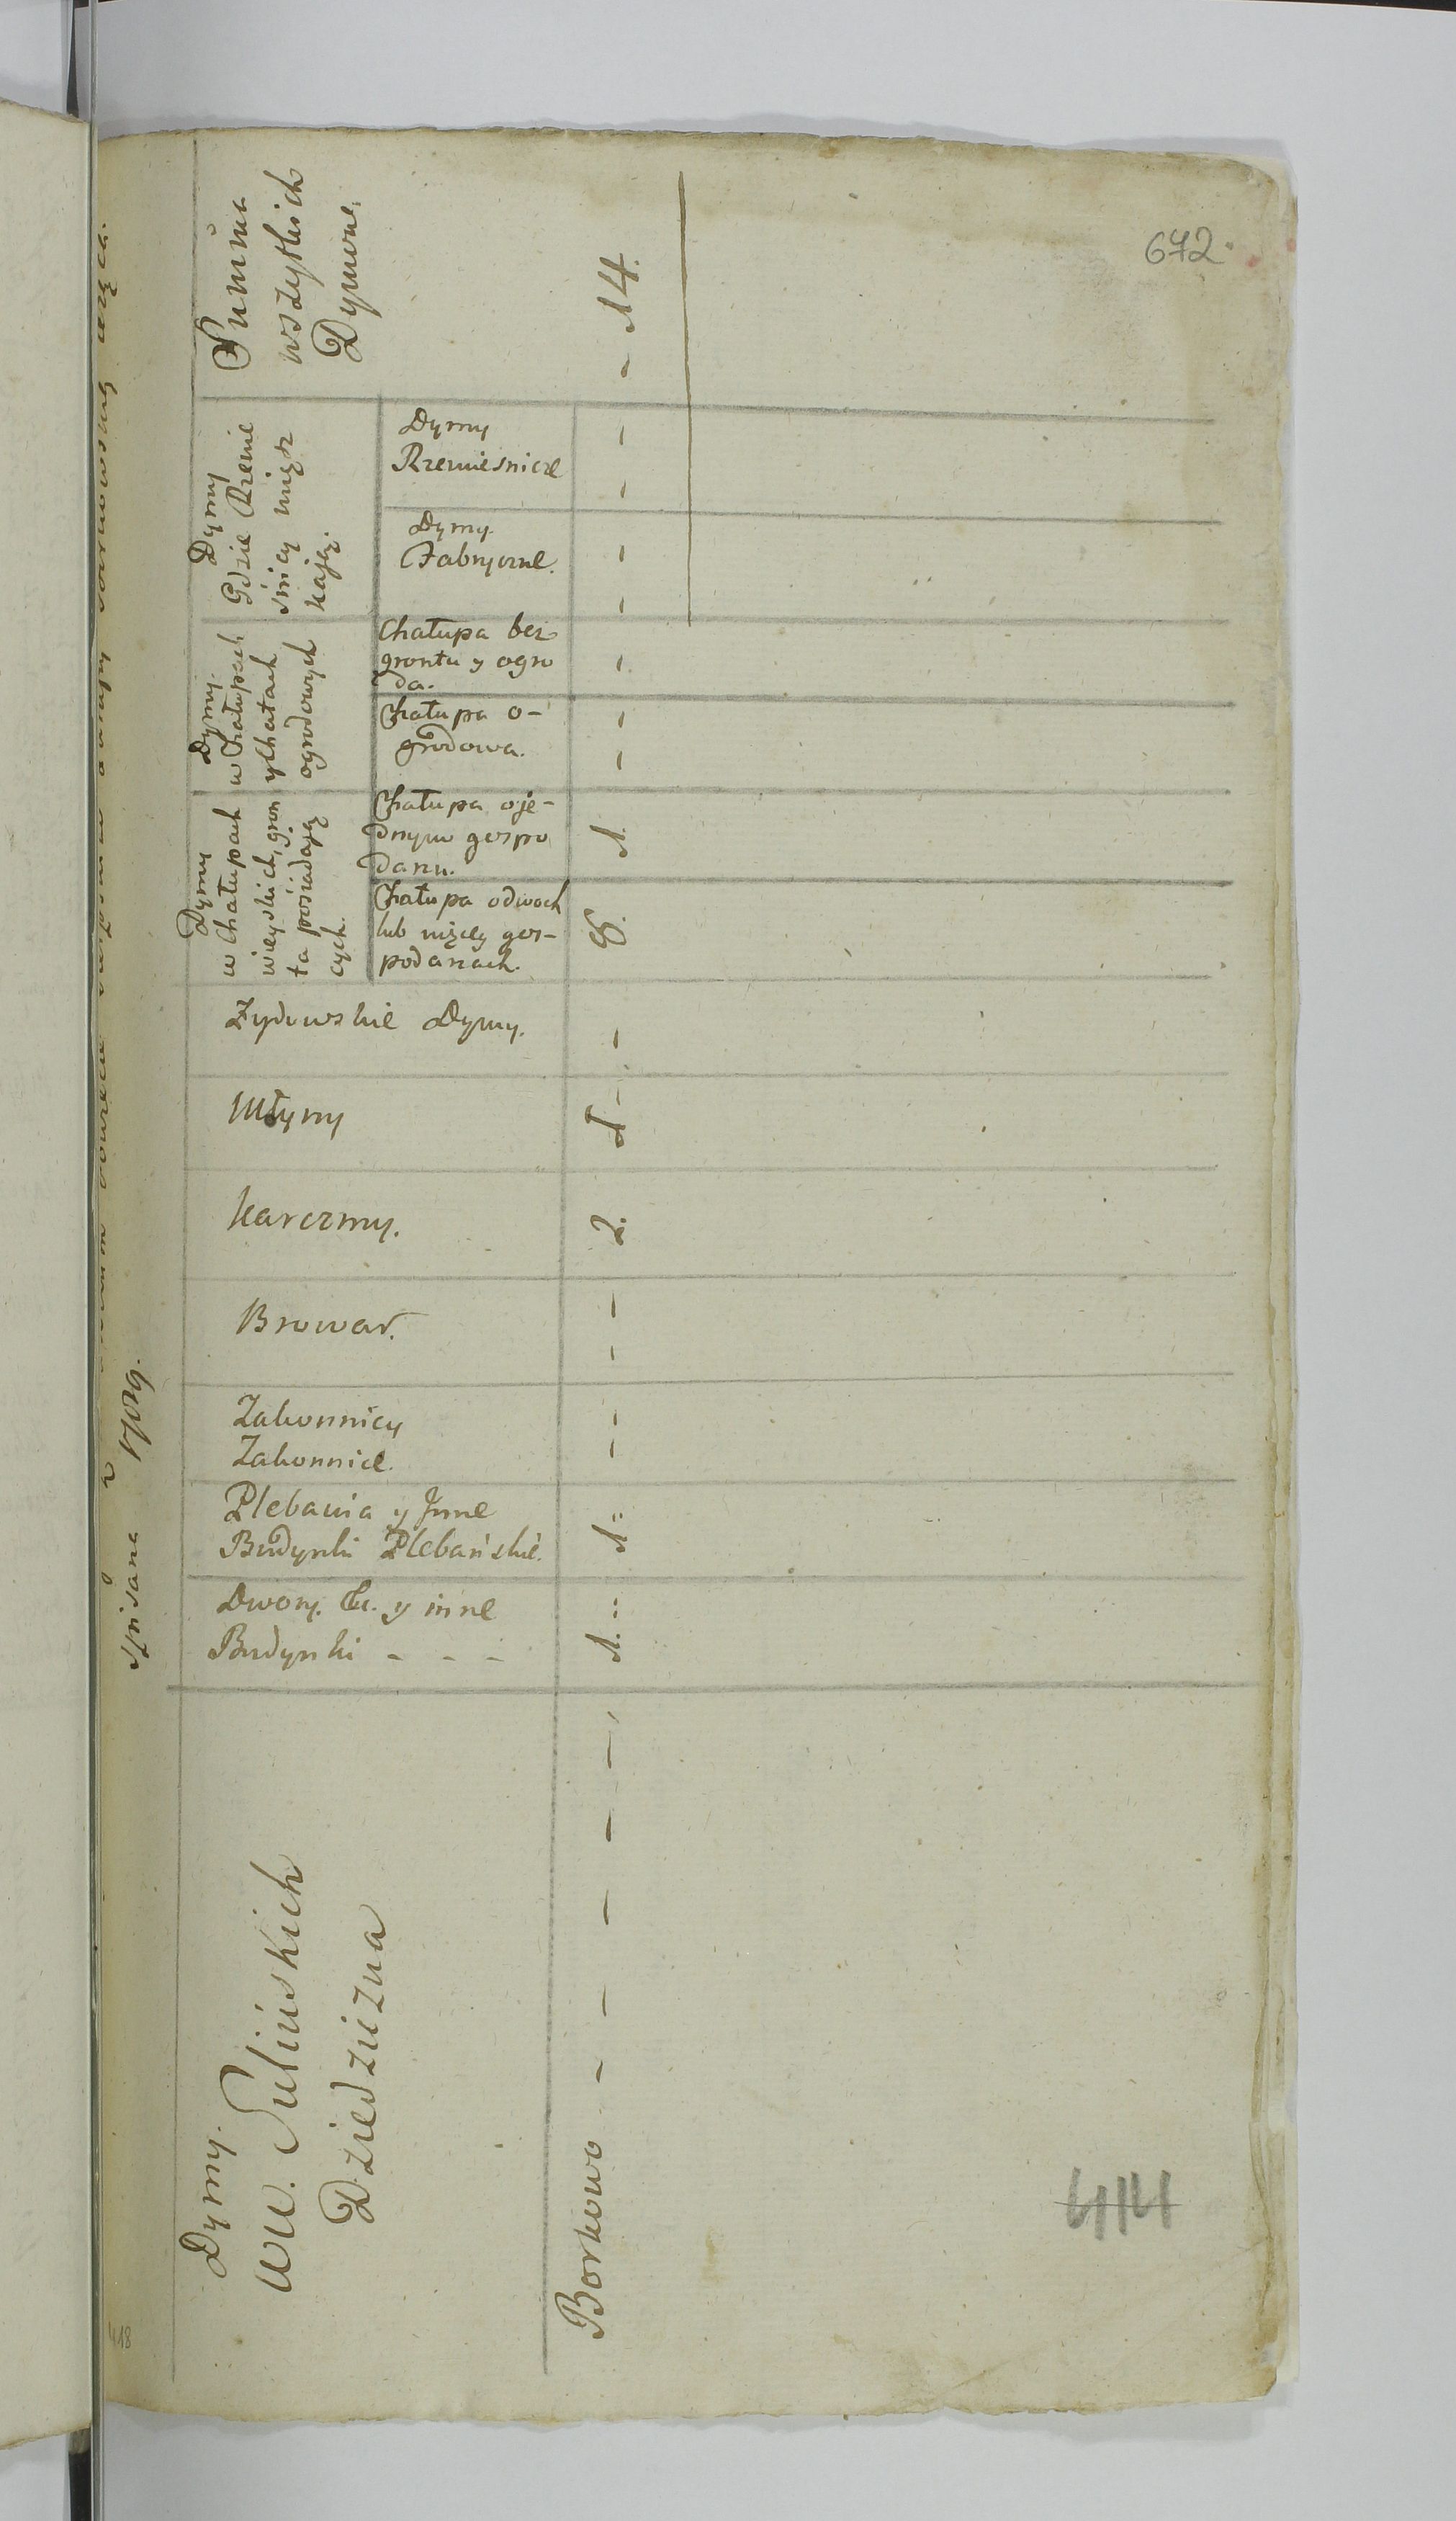 spisana 1789.
Dymy.
WW. Sulińskich
Dziedziczna
Dwory. y inne
Budynki - - -
Plebania y Inne
Budynki Plebańskie.
Zakonnicy
Zakonnice.
Browar.
Karczmy.
Młyny
Żydowskie Dymy.
Dymy
w Chałupach
wieyskich, gron
ta posiadają
cych.
Chałupa o dwoch
lub więcey gos-
podarzach.
Chałupa o je-
dnym gospo
darzu.
Dymy.
w Chałupach
y Chatach
ogrodowych
Chałupa o-
grodowa.
Chałupa bez
grontu y ogro
da.
Dymy
Gdzie Rzemie
śnicy miesz
kają.
Dymy.
Fabryczne.
Dymy
Rzemiesnicze
Summa
wszystkich
Dymow.
Borkowo - - - - - 1. 1. - - - - 2. 1 - - 8. 1. - - - - - - - - 14.
672.
414
418